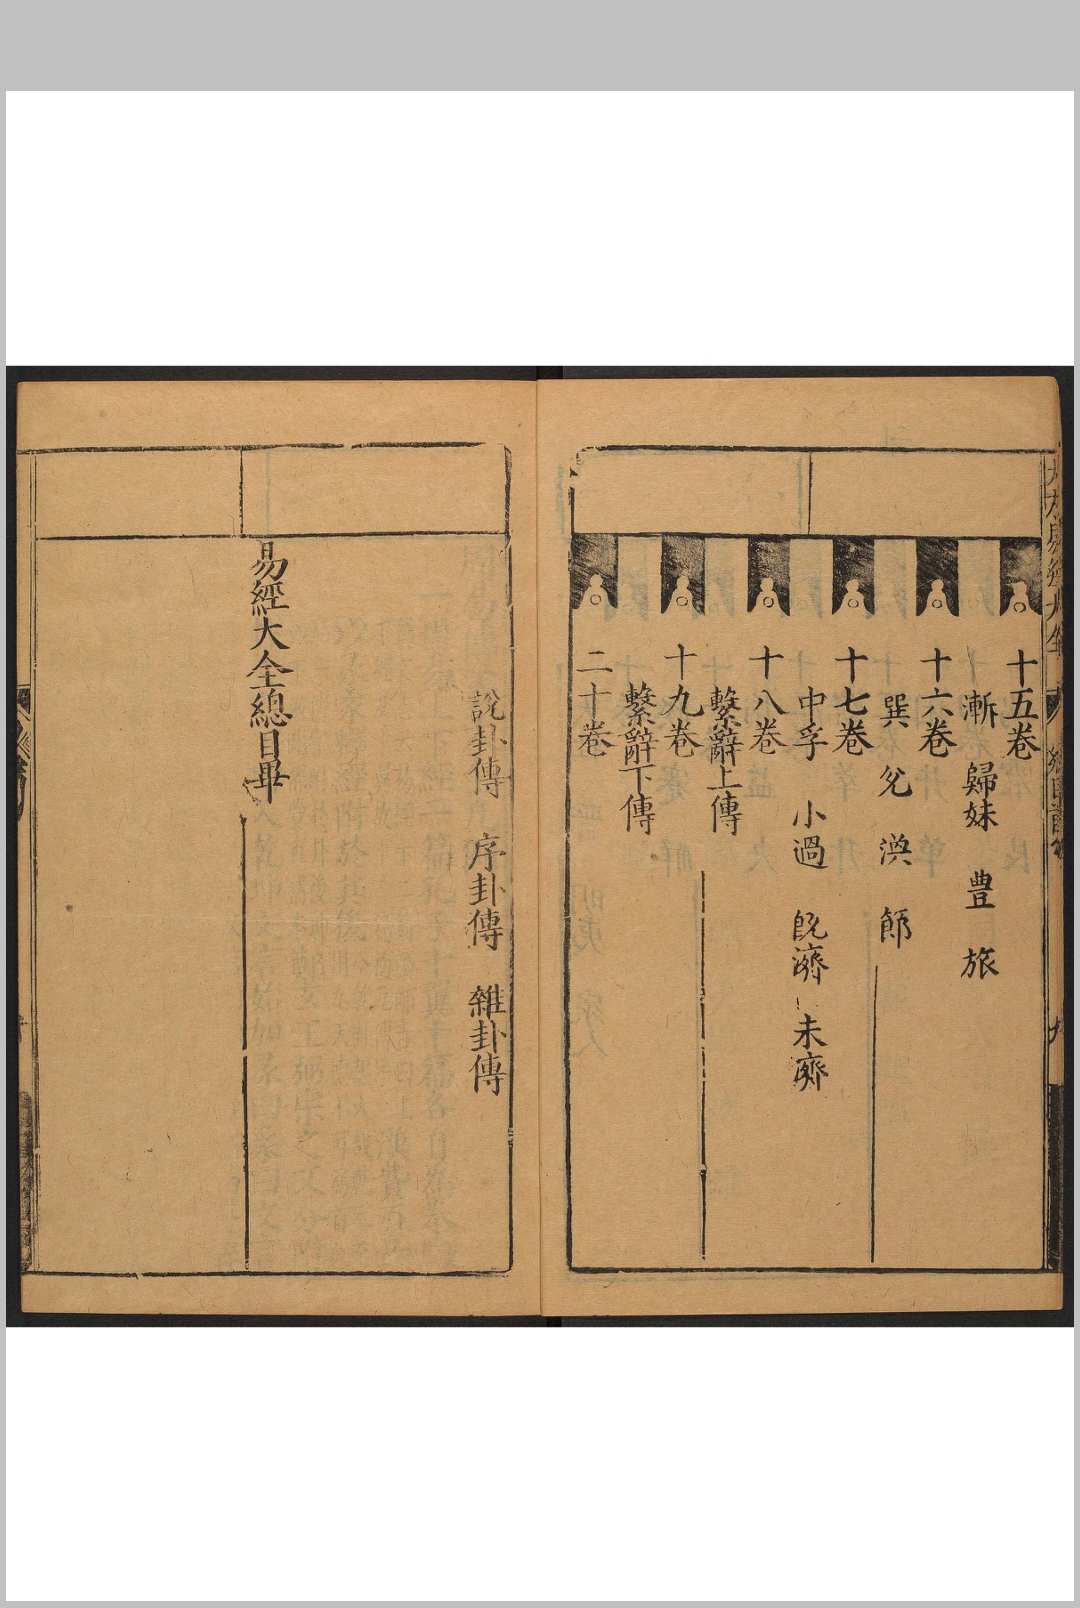 十五卷
漸 歸妹 豊 旅
十六卷
巽 兊 渙 節
十七卷
中孚 小過 旣濟 未濟
十八卷
繫辭上傳
十九卷
繫辭下傳
二十卷
說卦傳 序卦傳 雜卦傳
易經大全總目畢